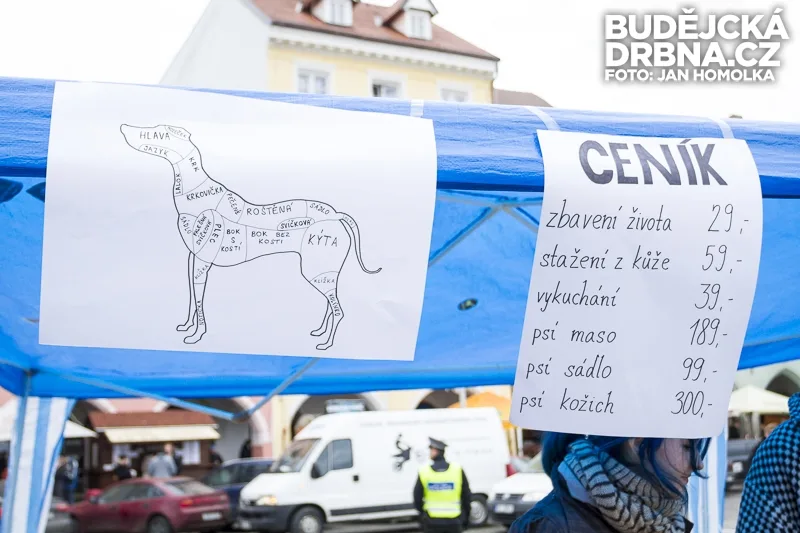 BUDĚJCKÁ
DRBNA.CZ
FOTO: JAN HOMOLKA
HLAVA
JAZYK
KRK
LALOK
KRKOVIČKA
PEČENĚ
ROŠTĚNÁ
SÁDLO
SVÍČKOVÁ
SÁDLO
FALEŠNÁ
SVÍČKOVÁ
PLEC
BOK
S
KOSTÍ
BOK BEZ
KOSTI
KÝTA
KLIŽKA
KOLENO
CENÍK
zbavení života 29,-
stažení z kůže 59,-
vykuchání 39,-
psí maso 189,-
psí sádlo 99,-
psí kožich 300,-